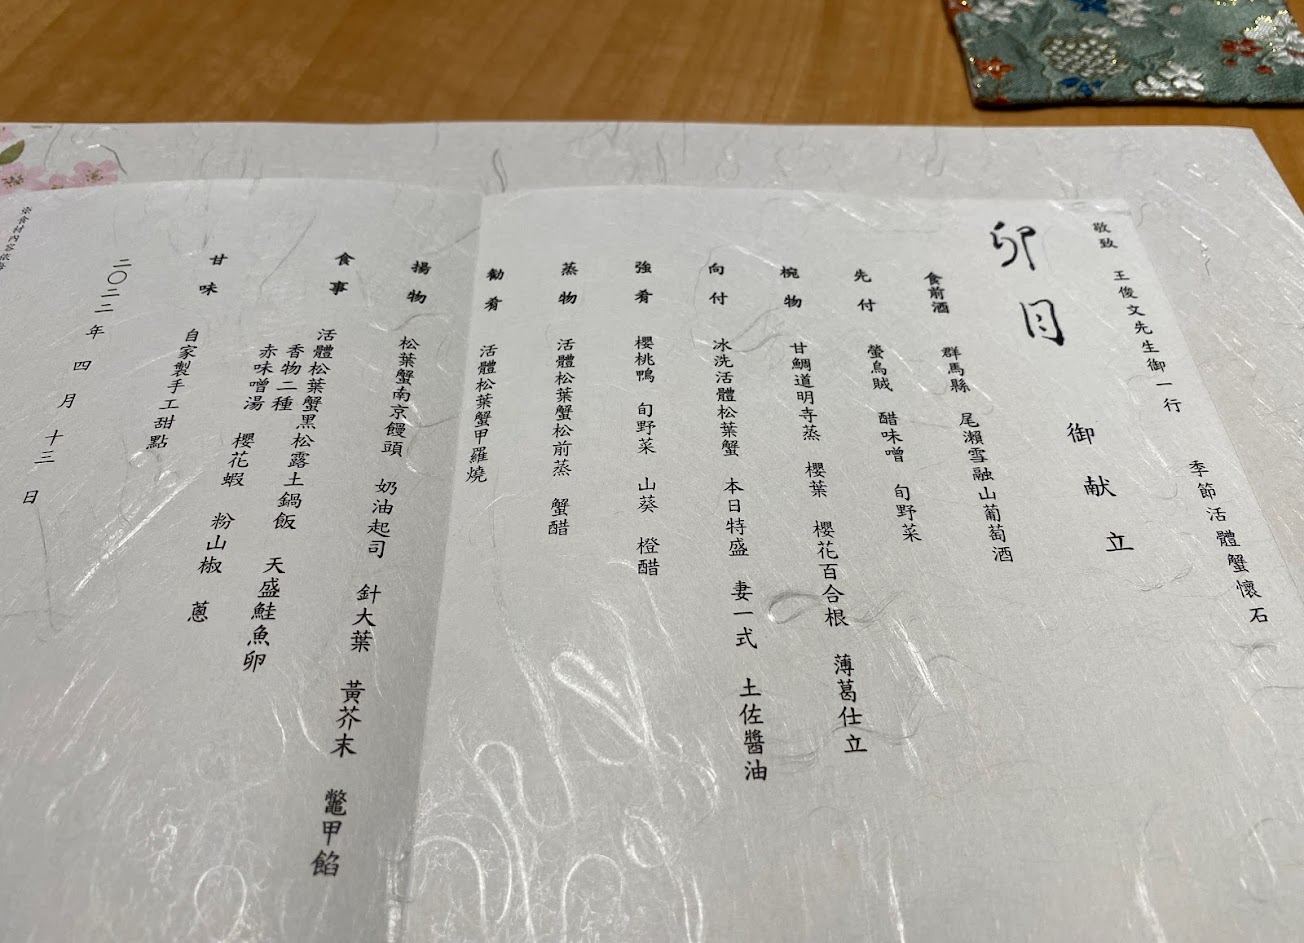 季節活體蟹懷石
敬致 王俊文先生御一行
卯月 御献立
食前酒 群馬縣 尾瀨雪融山葡萄酒
先付 螢烏賊 醋味噌 旬野菜
椀物 甘鯛道明寺蒸 櫻葉 櫻花百合根 薄葛仕立
向付 冰洗活體松葉蟹 本日特盛 妻一式 土佐醬油
強肴 櫻桃鴨 旬野菜 山葵 橙醋
蒸物 活體松葉蟹松前蒸 蟹醋
勧肴 活體松葉蟹甲羅燒
揚物 松葉蟹南京饅頭 奶油起司 針大葉 黃芥末 鼈甲餡
食事 活體松葉蟹黑松露土鍋飯 天盛鮭魚卵
香物二種
赤味噌湯 櫻花蝦 粉山椒 蔥
甘味 自家製手工甜點
二〇二二年四月十三日